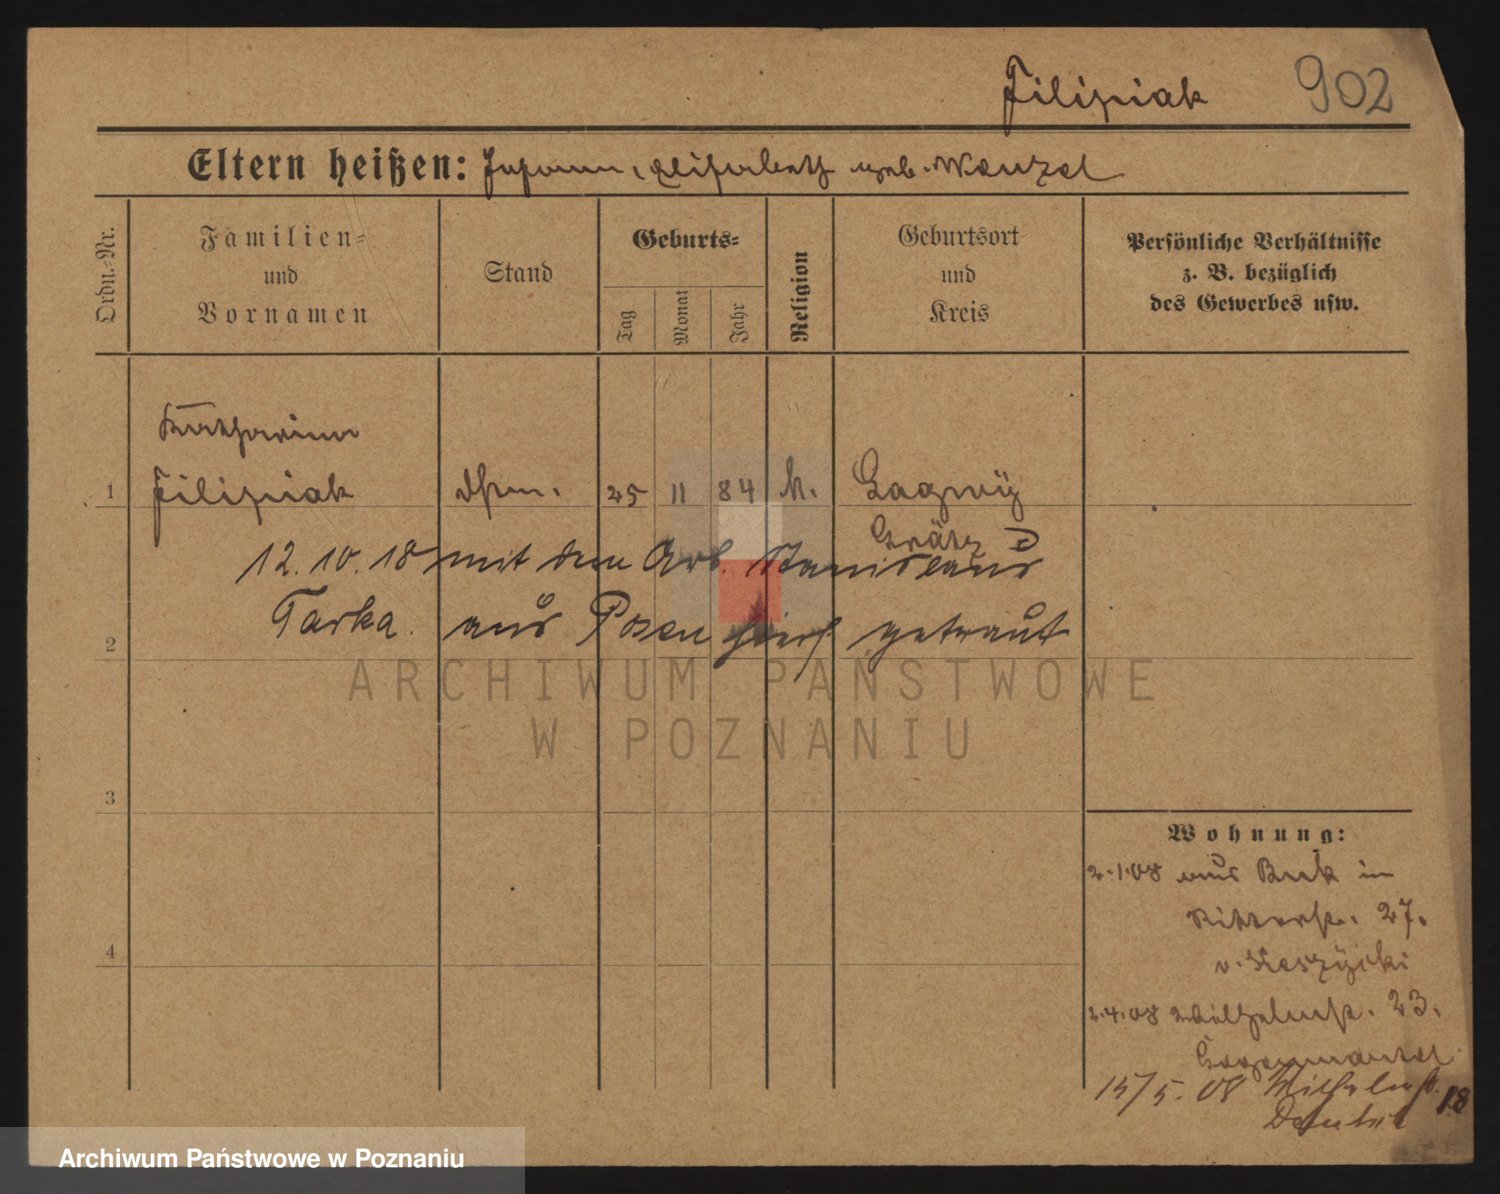 Filipiak 902
Eltern heißen: Johann, Elisabeth geb. Wenzel
Ordn.-Nr.
Familien-
und
Vornamen
Stand
Geburts-
Tag
Monat
Jahr
Religion
Geburtsort
und
Kreis
Persönliche Verhältnisse
z. B. bezüglich
des Gewerbes usw.
Katharina
1 Filipiak 25 11 84 k.
Grätz
12.10.18 mit dem Arb. Stanislaus
Tarka. aus Posen hier getraut
2
ARCHIWUM PAŃSTWOWE
W POZNANIU
3
Wohnung:
2.1.08 aus Buk in
Ritterstr. 27.
v.
4
2.4.08 Wilhelmstr. 23.
15/5. 08 Wilhelmstr. 18
Archiwum Państwowe w Poznaniu